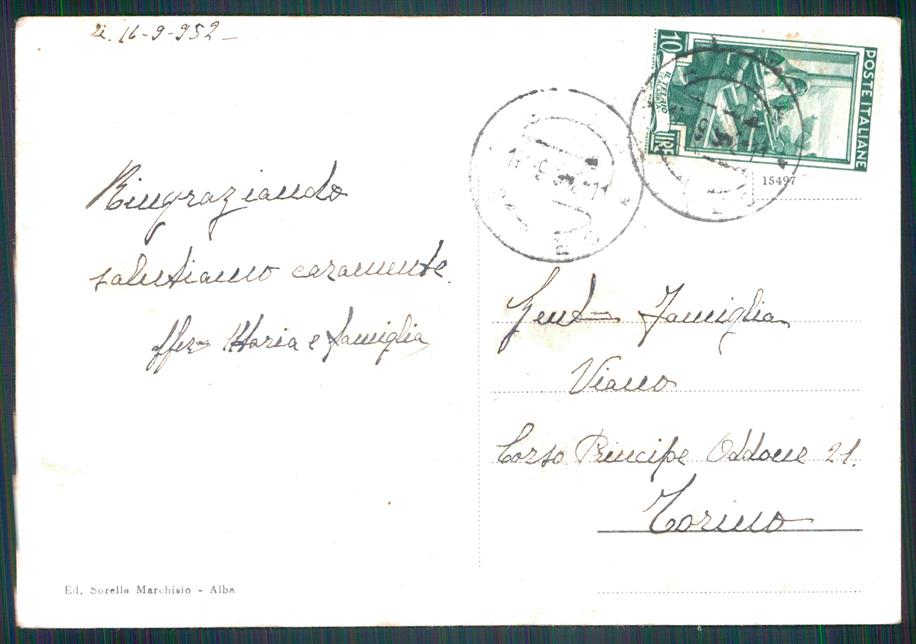 li. 16-9-952
Ringraziando
salutiamo caramente.
affez Maria e famiglia
Ed. Sorelle Marchisio - Alba
POSTE ITALIANE
10
LIRE
IL TELAIO
15497
Gent Famiglia
Viano
Corso Principe Oddone 21.
Torino